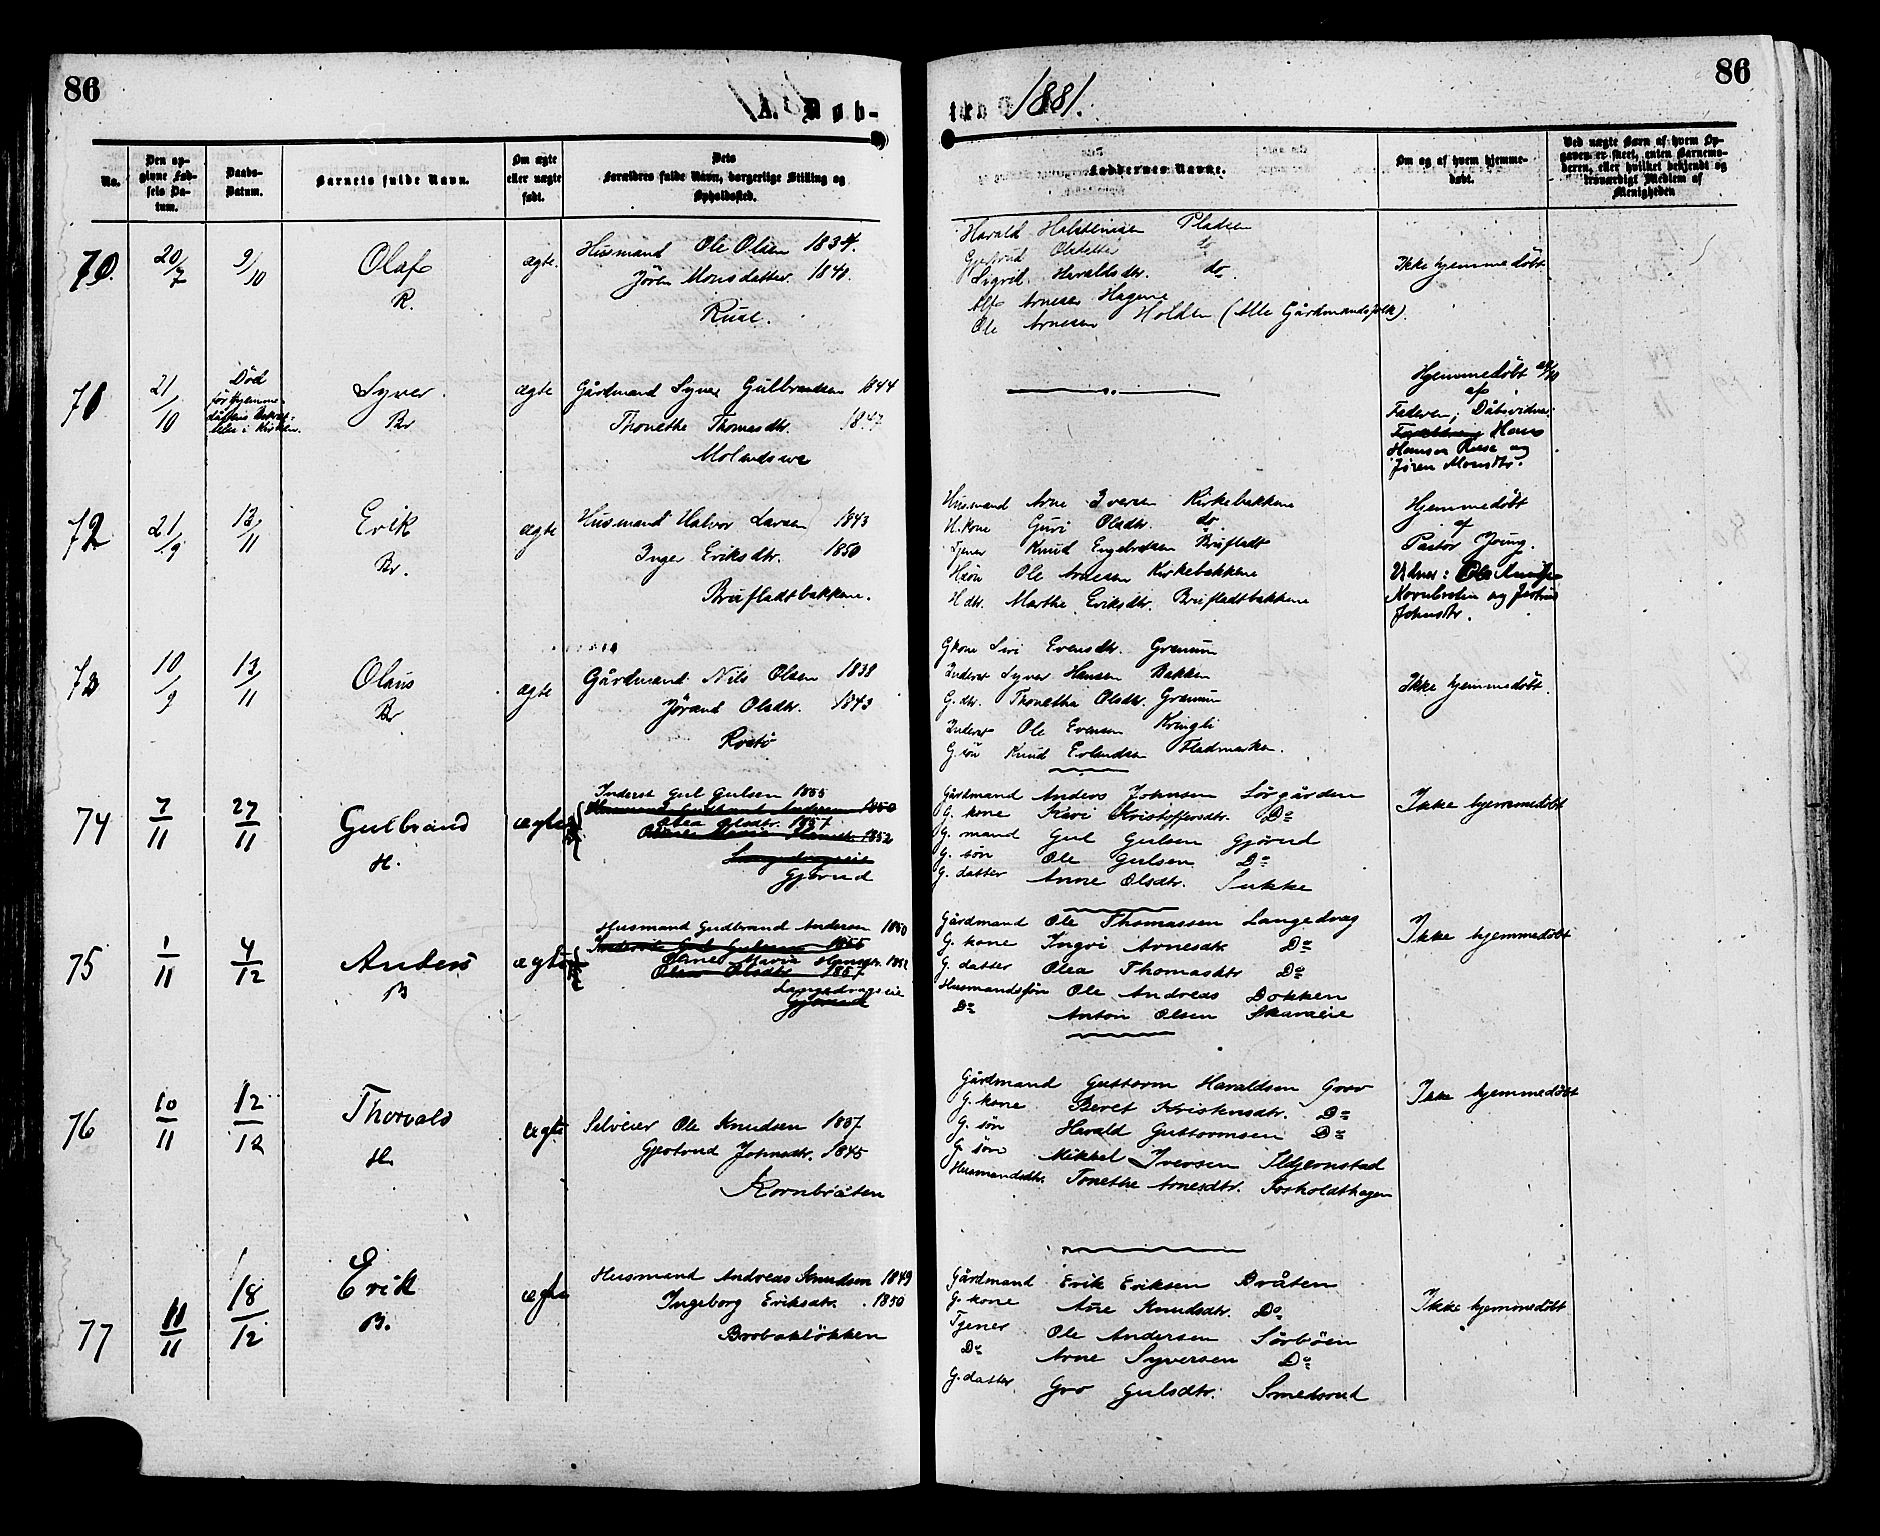 86
86
A. Døb-
1881.
No.
Den op-
givne Fød-
sels Da-
tum.
Daabs-
Datum.
Barnets fulde Navn.
Om ægte
eller uægte
født.
Dets
Forældres fulde Navn, borgerlige Stilling og
Opholdssted.
Faddernes Navne.
Om og af hvem hjemme-
døbt.
Ved uægte Børn af hvem Op-
gaven er skeet, enten Barnemo-
deren, eller hvilket bekjendt og
troværdigt Medlem af
Menigheden
70.
20/7
9/10
Olaf
R.
ægte.
Husmand Ole Olsen 1834.
Jören Monsdatter. 1840.
Rust.
Harald Halstensen Pladsen
Olsdatter do
Sigrid Haraldsdtr. do.
Arnesen Hagene
Ole Arnesen Holden (Alle Gårdmandsfolk).
Ikke hjemmedöbt.
71
21/10
Död
för Hjemme-
Syver.
Br
ægte
Gårdmand Syver Gulbrandsen 1844
Thonette Thomasdtr. 1847
Molandseie
Hjemmedöbt
af
Faderen; Dåbsvidner:
Hans
Hansen Ruse og
Jören Monsdtr.
72
21/9
13/11
Erik
Br.
ægte
Husmand Halvor Larsen 1843
Inger Eriksdtr. 1850
Brufladtbakkene.
Husmand Arne Iversen Kirkebakkene
H.kone Guri Olsdtr. do.
Tjener Knud Engebretsen Brufladt
Hsön Ole Arnesen Kirkebakkene
H.dtr. Marthe Eriksdtr. Brufladtbakkene
Hjemmedöbt
af
Pastor
Vidner: Ole
Kornbråten og
Johnsdtr.
73
10/9
13/11
Olaus
Br
ægte
Gårdmand Nils Olsen 1838
Jörand Olsdtr. 1843
Rostö
Gkone Siri Evensdtr. Granum
Inderst Syver Hansen Bakken
G.dtr. Thonethe Olsdtr. Granum
Inderst Ole Evensen Kringli
G.sön Knud Erlandsen Fladmarken.
Ikke hjemmedöbt.
74
7/11
27/11
Gulbrand
H.
ægte
Inderst Gul Gulsen 1855
Husmand Gulbrand Andersen 1850
Olea Olsdtr. 1857
Marie Hansdtr. 1852
Langedragseie
Gjörud
Gårdmand Anders Johnsen Sörgården
G. kone Kari Kristoffersdtr. Do
G. mand Gul Gulsen Gjörud
G. sön Ole Gulsen Do
G. datter Anne Olsdtr. Sukke
Ikke hjemmedöbt
75
1/11
4/12
Anders
B
ægte
Husmand Gudbrand Andersen 1850
Inderst Gul Gulsen 1855
Marie Hansdtr. 1852
Olea Olsdtr 1857
Langedragseie
Gjörud
Gårdmand Ole Thomassen Langedrag
G. kone Ingri Arnesdtr. Do
G. datter Olea Thomasdtr Do
Husmandssön Ole Andreas Dokken
Do Anton Olsen Skaraeie
Ikke hjemmedöbt
76
10/11
12/12
Thorvald
H.
ægte
Selveier Ole Knudsen 1837
Gjertrud Johnsdtr. 1845
Kornbråten
Gårdmand Guttorm Haraldsen Grov
G. kone Beret Kristensdtr. Do
G. sön Harald Guttormsen Do
G. sön Mikkel Iversen Stjernstad
Husmandsdtr. Tonethe Arnesdtr. Forholdthagen
Ikke hjemmedöbt
77
11/11
18/12
Erik
B.
ægte
Husmand Andreas Knudsen 1849
Ingeborg Eriksdtr. 1850
Brobaklökken
Gårdmand Erik Eriksen Bråten
G. kone Ane Knudsdtr. Do
Tjener Ole Andersen Sörböen
Do Arne Syversen Do
G. datter Gro Gulsdtr. Smedsrud
Ikke hjemmedöbt